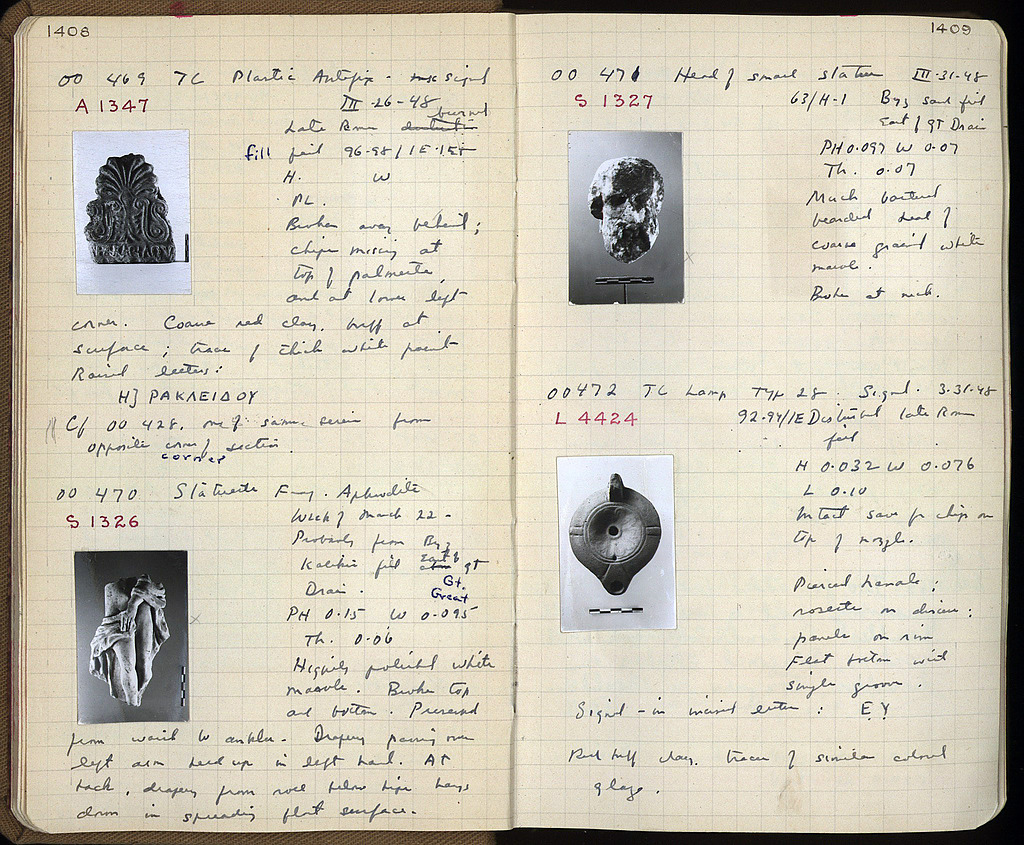 1408
OO 469 TC Plastic Antefix - signed
A 1347
III-26-48
Late Roman burnt
fill 96-98/IE-
H. W
PL.
Broken away behind;
chips missing at
top of palmette,
and at lower left
corner. Coarse red clay, buff at
surface; trace of thick white paint
Raised letters:
H] ΡΑΚΛΕΙΔΟΥ
Cf OO 428, one of same series from
opposite corner of section.
corner
OO 470 Statuette Frag. Aphrodite
S 1326
Week of March 22-
Probably from Byz
fill East of gt
Drain.
Gt.
Great
PH 0.15 W 0.095
Th. 0.06
Highly polished white
marble. Broken top
and bottom. Preserved
from waist to ankles. Drapery passing over
left arm held up in left hand. At
back, drapery from just below hips hangs
down in spreading flat surface.
1409
OO 471 Head of small statue III-31-48
S 1327
63/H-1 Byz sand fill
East of gt Drain
PH 0.097 W 0.07
Th. 0.07
Much battered
bearded head of
coarse grained white
marble.
Broken at neck.
OO 472 TC Lamp Type 28. Signed. 3-31-48
L 4424
92-94/IE Disturbed late Roman
fill
H 0.032 W 0.076
L 0.10
Intact save for chips on
top of nozzle.
Pierced handle;
rosette on discus;
panels on rim
Flat bottom with
single groove.
Signed - in incised letters: ΕΥ
Red buff clay. traces of similar colored
glaze.